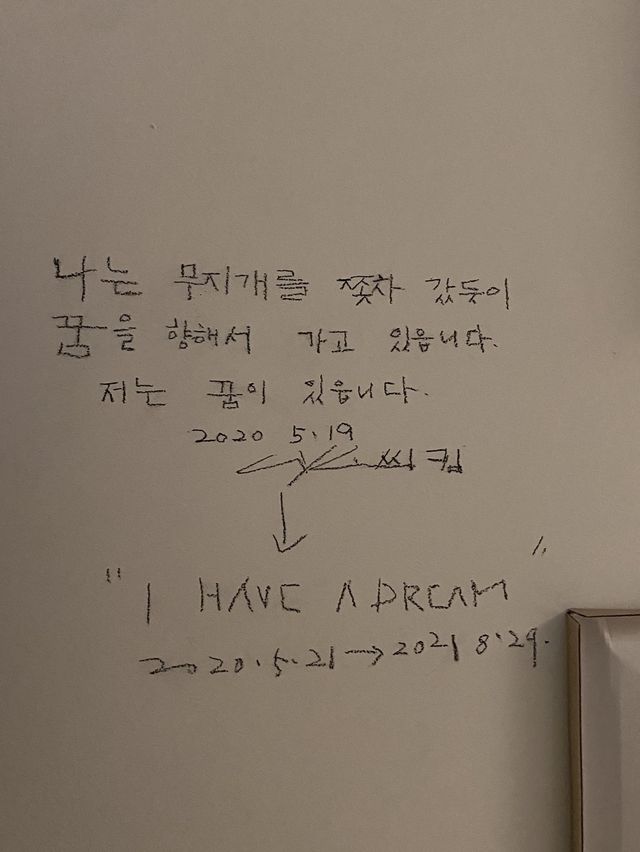 나는 무지개를 쫓차 갔듯이
꿈을 향해서 가고 있읍니다.
저는 꿈이 있읍니다.
2020 5.19
씨킴
↓
" I HAVE A DREAM "
2020.5.21→2021 8.29.